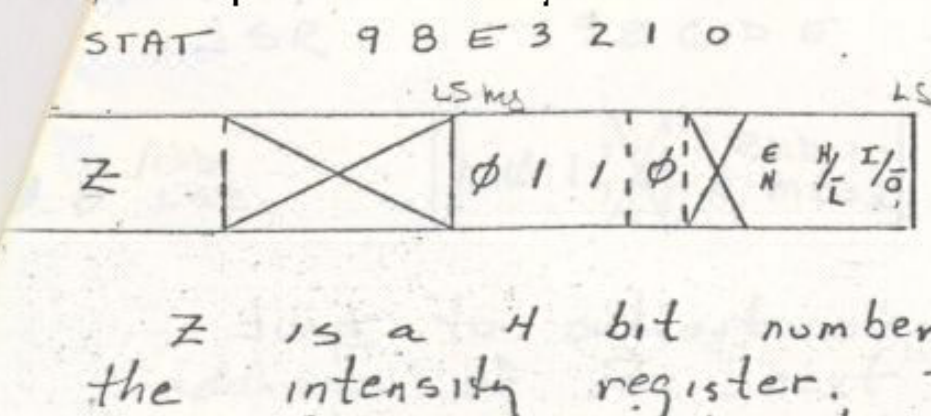 STAT 9 8 E 3 2 1 0
LS ms LS
Z Ø 1 1 Ø E N H/L I/O
Z is a 4 bit number
the intensity register.